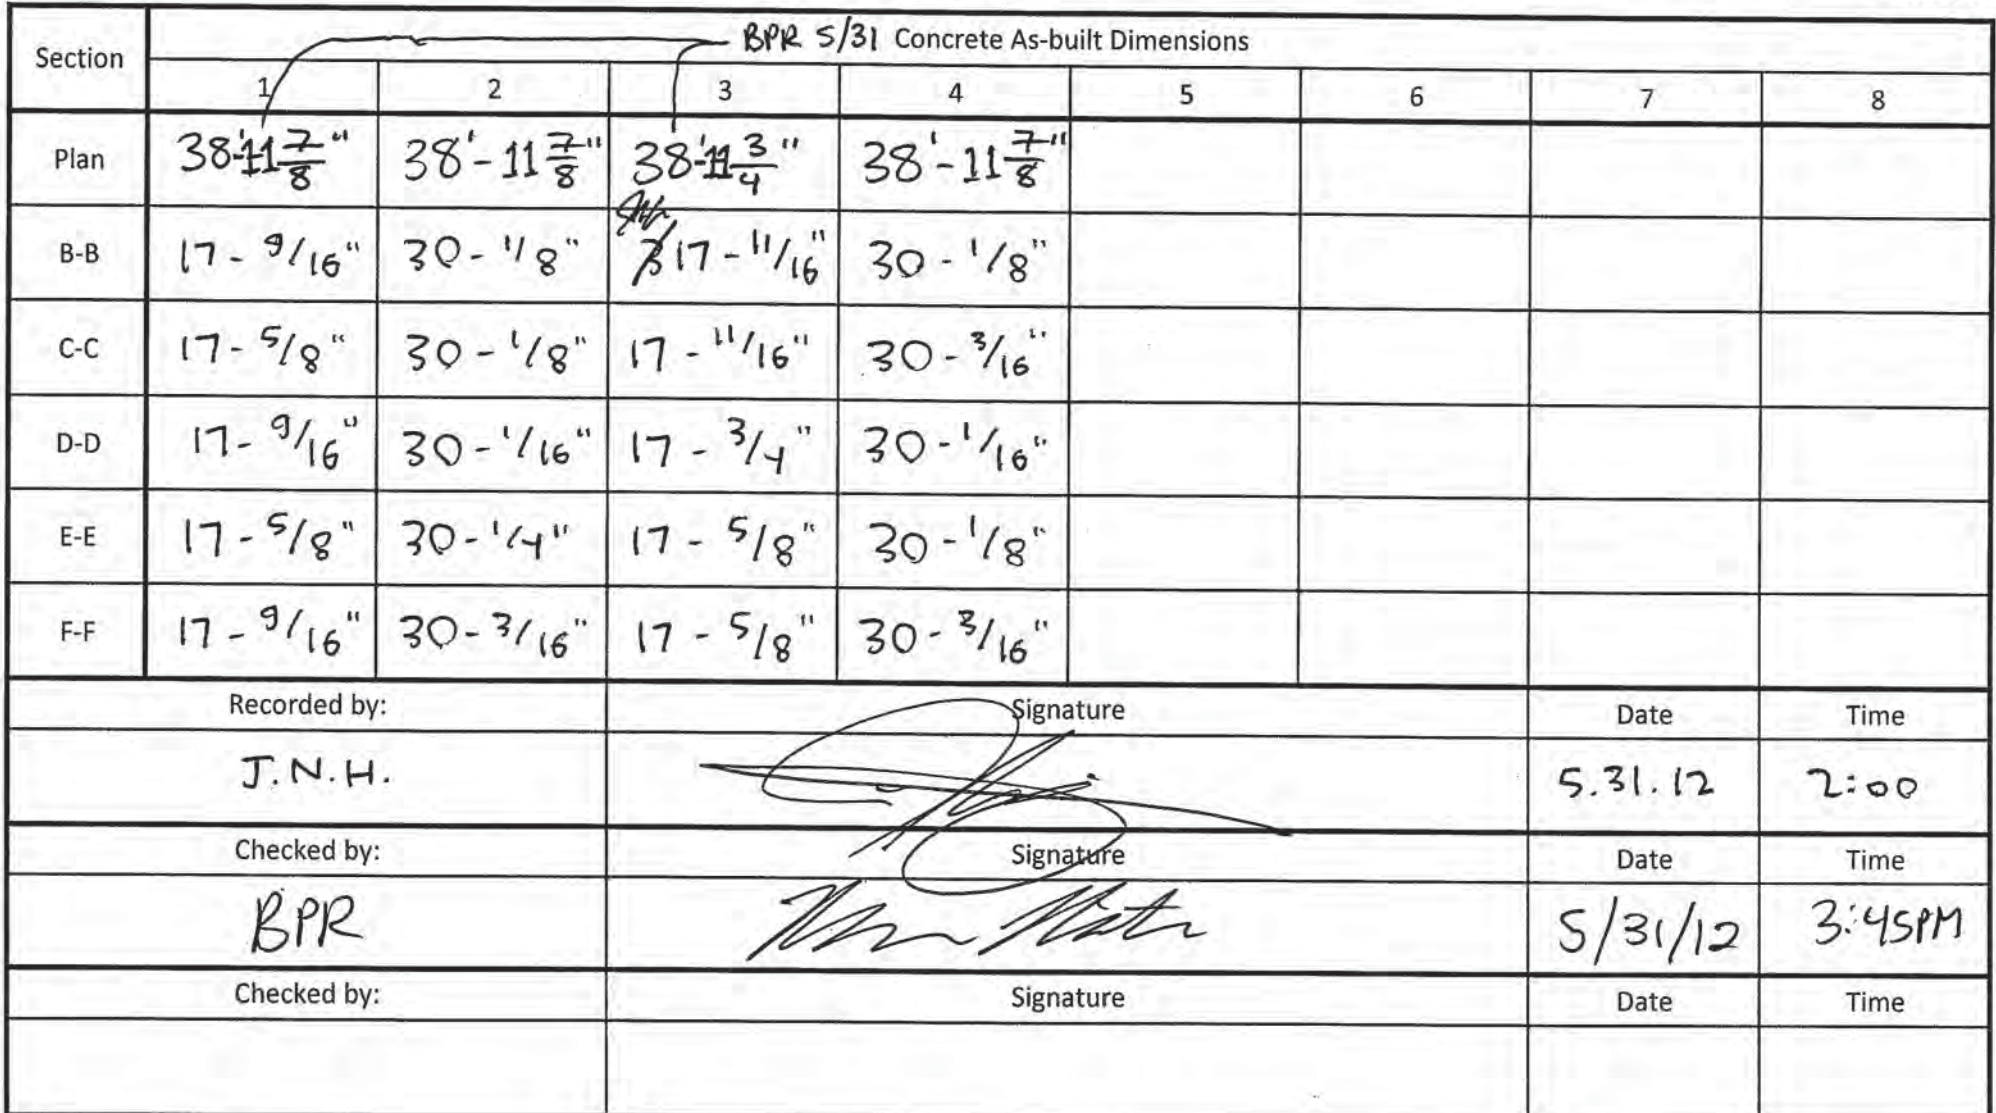 BPR 5/31 Concrete As-built Dimensions
Section
1 2 3 4 5 6 7 8
Plan 38'-11 7/8" 38'-11 7/8" 38'-11 3/4" 38'-11 7/8"
B-B 17-9/16" 30-1/8" 17-11/16" 30-1/8"
C-C 17-5/8" 30-1/8" 17-11/16" 30-3/16"
D-D 17-9/16" 30-1/16" 17-3/4" 30-1/16"
E-E 17-5/8" 30-1/4" 17-5/8" 30-1/8"
F-F 17-9/16" 30-3/16" 17-5/8" 30-3/16"
Recorded by: Signature Date Time
J.N.H. 5.31.12 2:00
Checked by: Signature Date Time
BPR 5/31/12 3:45PM
Checked by: Signature Date Time